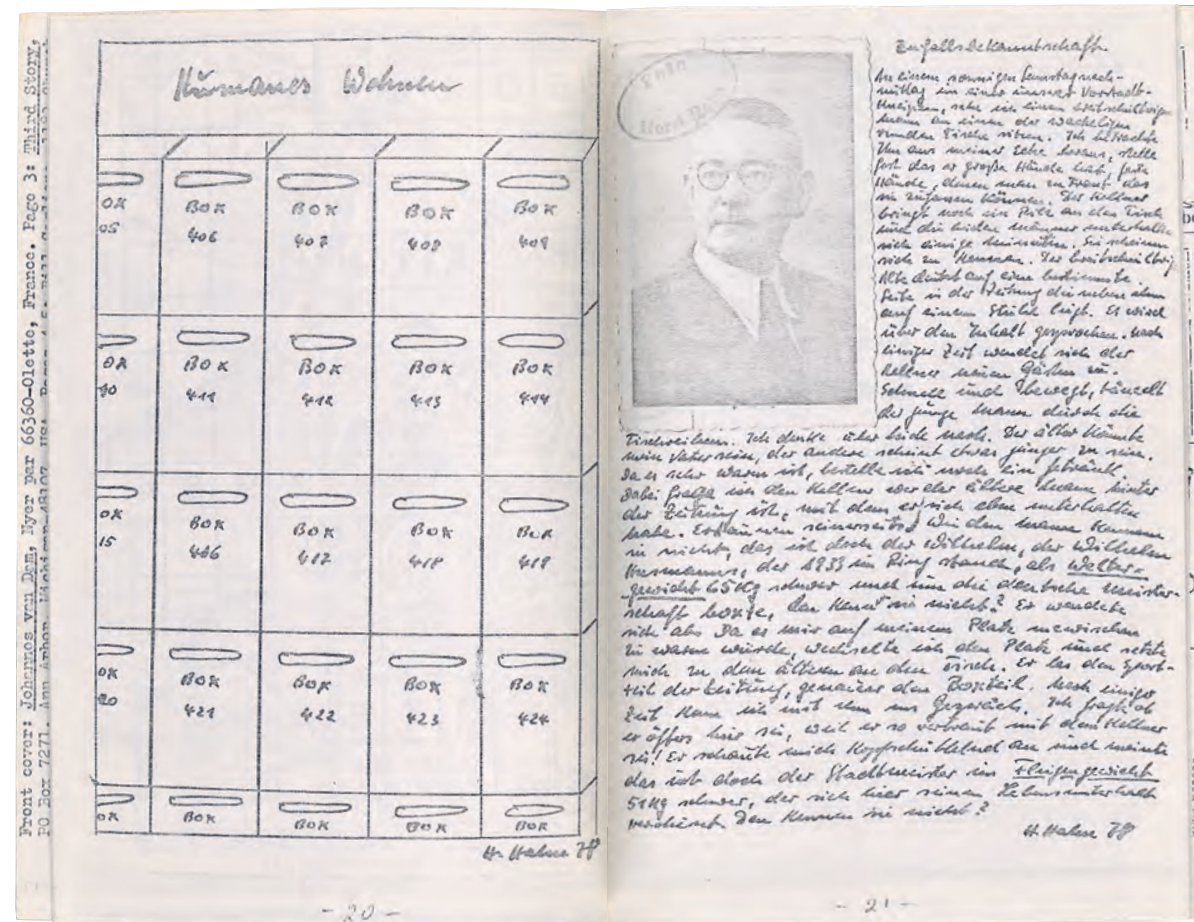 Front cover: Johannes van Dam, Nyer par 66360-Olette, France. Page 3: Third Story,
PO Box 7271, Ann Arbor, Michigan 48107, USA.
Humanes Wohnen
OX BOX BOX BOX BOX
05 406 407 408 409
OX BOX BOX BOX BOX
10 411 412 413 414
OX BOX BOX BOX BOX
15 416 417 418 419
OX BOX BOX BOX BOX
20 421 422 423 424
OX BOX BOX BOX BOX
H. Hahne 78
- 20 -
Zufallsbekanntschaft.
Foto
Horst
An einem sonnigen Samstagnach-
mittag in einer unserer Vorstadt-
kneipen, sehe ich einen breitschultrigen
Mann an einem der wackeligen
runden Tische sitzen. Ich betrachte
Ihn aus meiner Ecke heraus, stelle
fest das er große Hände hat, feste
Hände, denen man zu traut das
sie zupacken können. Der Kellner
bringt noch ein Pils an den Tisch
und die beiden Männer unterhalten
sich einige Minuten. Sie scheinen
sich zu kennen. Der breitschultrige
Alte deutet auf eine bestimmte
Seite in der Zeitung die neben ihm
auf einem Stuhle liegt. Es wird
über den Inhalt gesprochen. Nach
einiger Zeit wendet sich der
Kellner neuen Gästen zu.
Schnell und bewegt, tänzelt
der junge Mann durch die
Tischreihen. Ich denke über beide nach. Der ältere könnte
mein Vater sein, der andere scheint etwas jünger zu sein.
Da es sehr warm ist, bestelle ich noch ein Getränk.
Dabei frage ich den Kellner wer der ältere Mann hinter
der Zeitung ist, mit dem er sich eben unterhalten
habe. Erstaunen seinerseits, Wie den Mann kennen
sie nicht, das ist doch der Wilhelm, der Wilhelm
der 1933 im Ring stand, als Welter-
gewicht 65 Kg schwer und um die deutsche Meister-
schaft boxte, den kenn' sie nicht? Er wendete
sich ab. Da es mir auf meinem Platz inzwischen
zu warm wurde, wechselte ich den Platz und setzte
mich zu dem älteren an den Tisch. Er las den Sport-
teil der Zeitung, genauer den Boxteil. Nach einiger
Zeit kam ich mit ihm ins Gespräch. Ich fragte ob
er öfters hier sei, weil er so vertraut mit dem Kellner
sei! Er schaute mich kopfschüttelnd an und meinte
das ist doch der Stadtmeister im Fliegengewicht
51 Kg schwer, der sich hier seinen Lebensunterhalt
verdient. Den kennen sie nicht?
H. Hahne 78
- 21 -